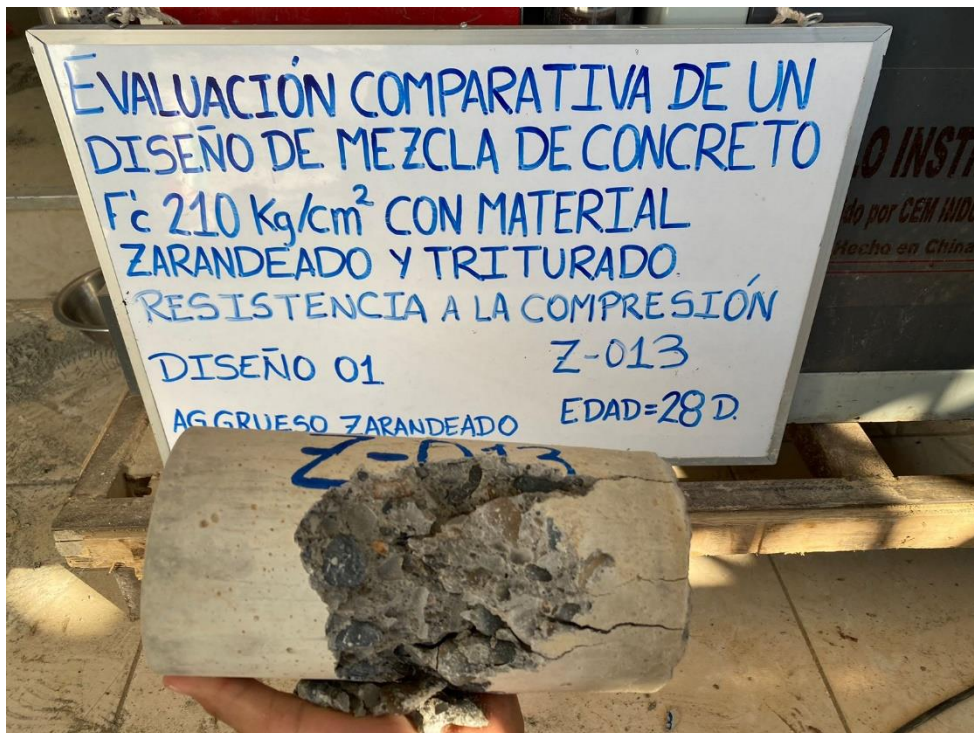 EVALUACIÓN COMPARATIVA DE UN
DISEÑO DE MEZCLA DE CONCRETO
F'c 210 Kg/cm² CON MATERIAL
ZARANDEADO Y TRITURADO
RESISTENCIA A LA COMPRESIÓN
DISEÑO 01 Z-013
AG GRUESO ZARANDEADO EDAD=28 D.
Z-013
do por CEM
Hecho en China